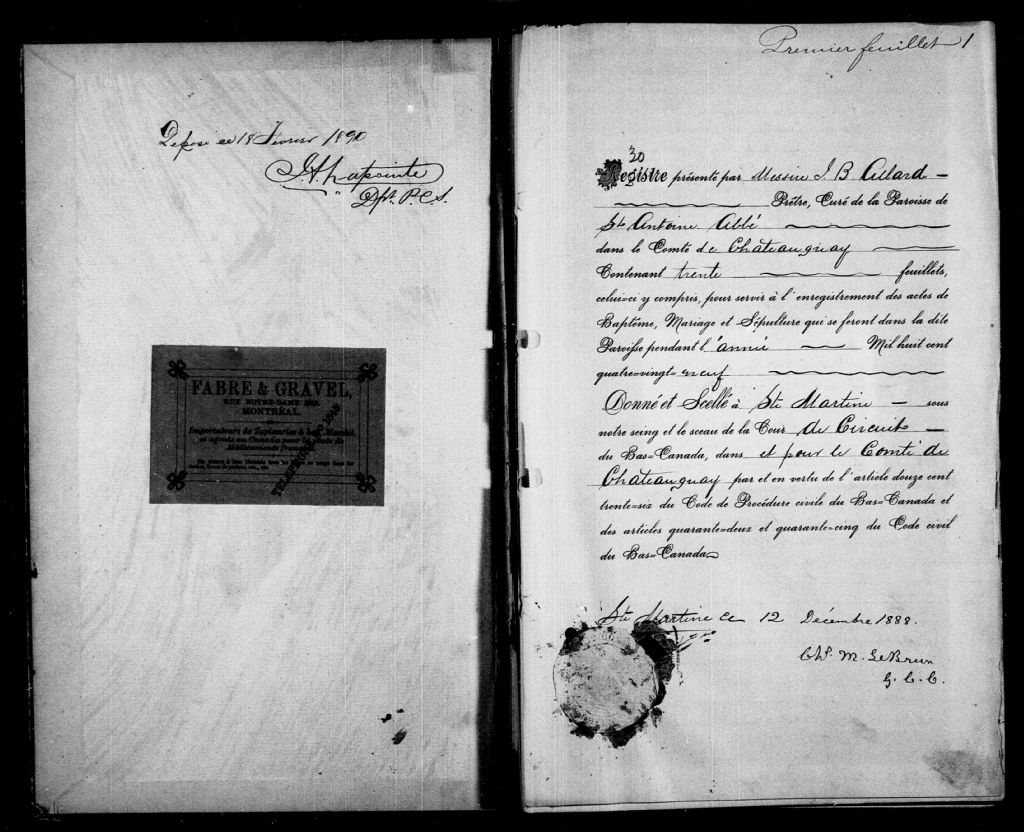 Déposé ce 18 Février 1890
J.A. Lapointe
Dpt. P.C.S.
FABRE & GRAVEL,
RUE NOTRE-DAME
MONTREAL.
Importateurs de Tapisseries à bon Marché
et agents au Canada pour la vente de
Médicaments français
TELEPHONE
Premier feuillet 1
30
Registre présenté par Messire J B Allard
Prêtre, Curé de la Paroisse de
St Antoine Abbé
dans le Comté de Chateauguay
Contenant trente feuillets,
celui=ci y compris, pour servir à l'enregistrement des actes de
Baptême, Mariage et Sépulture qui se feront dans la dite
Paroisse pendant l'année Mil huit cent
quatre=vingt=neuf
Donné et Scellé à Ste Martine sous
notre seing et le sceau de la Cour de Circuit
du Bas=Canada, dans et pour le Comté de
Chateauguay par et en vertu de l'article douze cent
trente=six du Code de Procédure civile du Bas=Canada et
des articles quarante=deux et quarante=cinq du Code civil
du Bas=Canada
Ste Martine ce 12 Décembre 1888.
Chs. M. LeBrun
G. C. C.